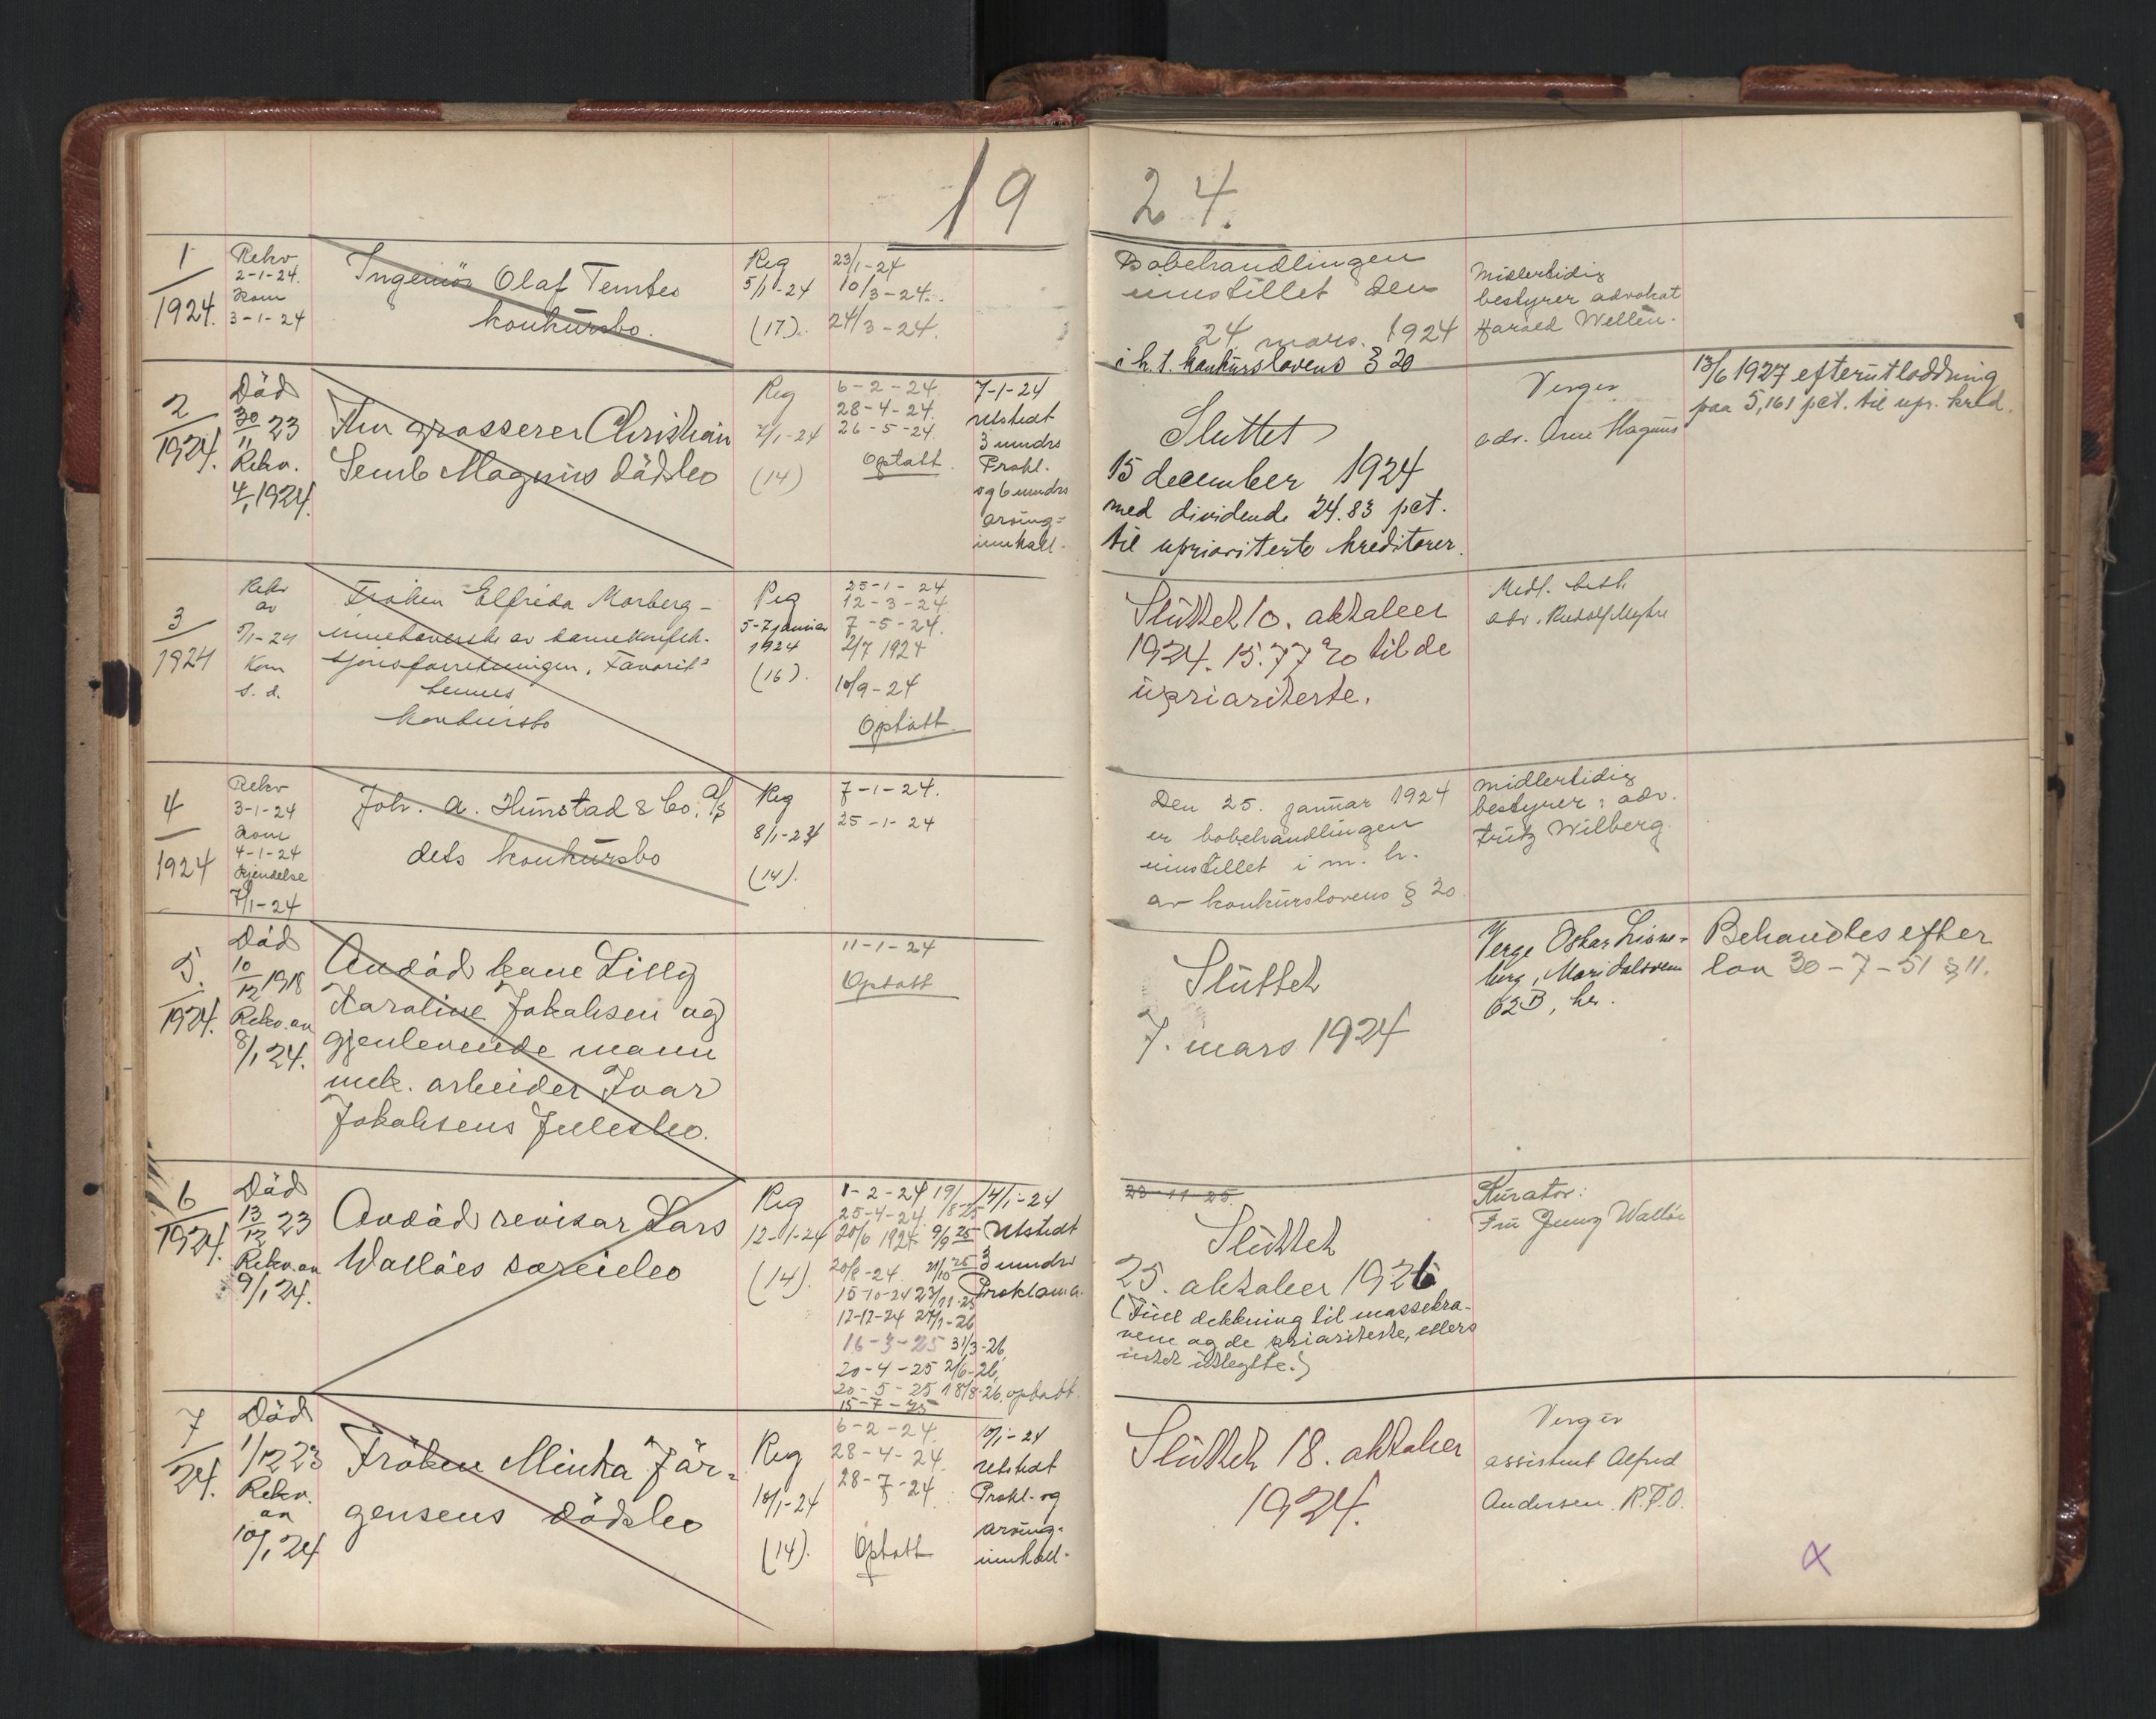 19
24.
1
1924.
Rekv
2-1-24.
Kom
3-1-24
Ingeniör Olaf Temtes
konkursbo.
Reg
5/1-24
(17).
23/1-24
10/3-24.
24/3-24.
Bobehandlingen
innstillet den
24. mars. 1924
i h. t. konkurslovens § 20
Midlertidig
bestyrer advokat
Harald Wellén.
2
1924.
Död
30/11 23
Rekv.
4/1 1924.
Fhv grosserer Christian
Semb Magnus dödsbo
Reg
7/1-24
(14)
6-2-24.
28-4-24.
26-5-24.
Optatt.
7-1-24
Utstedt
3 mndrs
Prokl.
og 6 mndrs
arving-
innkall.
Sluttet
15 december 1924
med dividende 24.83 pct.
til uprioriterte kreditorer.
Verger
adv. Arne Magnus
13/6 1927 efterutloddning
paa 5,161 pct. til upr. kred.
3
1924
Rekv
av
5/1-24
Kom
s. d.
Fröken Elfrida Morberg -
innehaverske av damekonfek-
sjonsforretningen "Favorit"
hennes
konkursbo
Reg
5-7 januar
1924
(16).
25-1-24
12-3-24.
7-5-24.
2/7 1924
10/9-24
Optatt.
Sluttet 10. oktober
1924. 15.77 % til de
uprioriterte.
Medl. best.
adv. Rudolf Myhre
4
1924
Rekv
3-1-24
Kom
4-1-24
Kjendelse
7/1-24
Joh. A. Hunstad & Co. A/S
dets konkursbo
Reg
8/1-24
(14).
7-1-24.
25-1-24
Den 25. januar 1924
er bobehandlingen
innstillet i m. h.
av konkurslovens § 20.
Midlertidig
bestyrer: adv.
Fritz Wilberg.
5.
1924.
Död
10/12 1918
Rekv. av
8/1 24.
Avdöd kone Lilly
Karoline Jakobsen og
gjenlevende mann
mek. arbeider Ivar
Jakobsens fellesbo.
11-1-24
Optatt
Sluttet
7. mars 1924
Verge Oskar
Maridalsveien
62B, her.
Behandles efter
lov 30-7-51 § 11.
6
1924.
Död
13/12 23
Rekv. av
9/1 24.
Avdöd revisor Lars
Wallöes særeiebo
Reg
12-1-24
(14).
1-2-24 19/8 25
25-4-24
20/6 1924 9/9 25
20/8-24. 21/10 25
15-10-24 23/11-25
12-12-24 27/1-26
16-3-25 31/3-26
20-4-25 2/6-26,
20-5-25 18/8-26. optatt.
15-7-25
14/1-24
Utstedt
3 mndrs
Proklama.
23-11-25.
Sluttet
25. oktober 1926
(Full dekkning til massekra-
vene og de prioriterte, ellers
intet utlegte.)
Kurator:
Fru Jenny Wallöe
7
24.
Död
1/12 23
Rekv.
av
10/1 24
Fröken Minka Jör-
gensens dödsbo
Reg
10/1-24
(14).
6-2-24.
28-4-24
28-7-24
Optatt
10/1-24
Utstedt
Prokl. og
arving-
innkall.
Sluttet 18. oktober
1924.
Verger
assistent Alfred
Andersen. R.F.O.
X